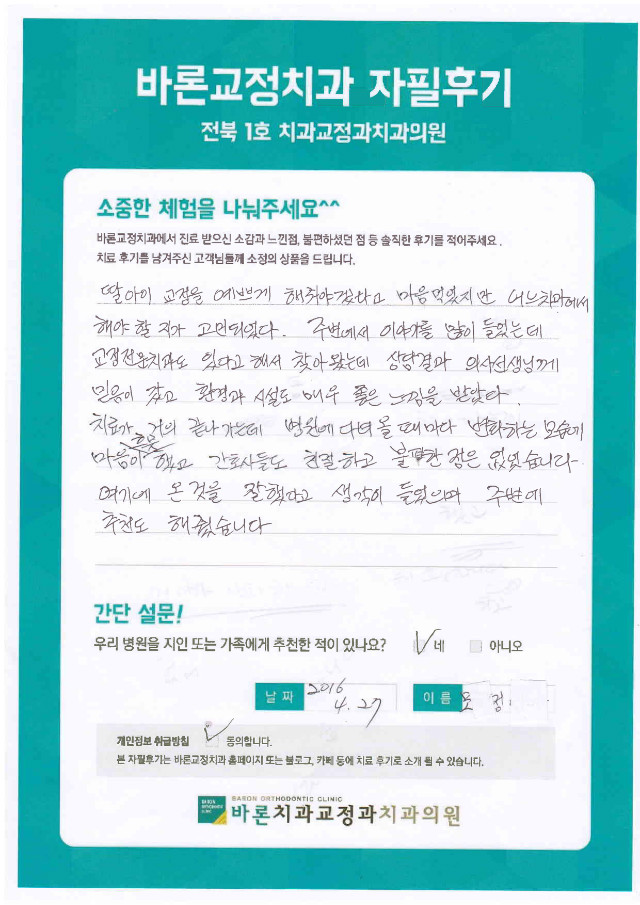 바론교정치과 자필후기
전북 1호 치과교정과치과의원
소중한 체험을 나눠주세요^^
바론교정치과에서 진료 받으신 소감과 느낀점, 불편하셨던 점 등 솔직한 후기를 적어주세요.
치료 후기를 남겨주신 고객님들께 소정의 상품을 드립니다.
딸아이 교정을 예쁘게 해줘야겠다고 마음먹었지만 어느치과에서
해야 할 지가 고민되었다. 주변에서 이야기를 많이 들었는데
교정전문치과도 있다고 해서 찾아왔는데 상담결과 의사선생님께
믿음이 갔고 환경과 시설도 매우 좋은 느낌을 받았다.
치료가 거의 끝나가는데 병원에 다녀올 때마다 변화하는 모습에
마음이 흐뭇했고 간호사들도 친절하고 불편한 점은 없었습니다.
여기에 온 것을 잘했다고 생각이 들었으며 주변에
추천도 해줬습니다
간단 설문!
우리 병원을 지인 또는 가족에게 추천한 적이 있나요? 네 아니오
날짜 2016 4. 27 이름 정
개인정보 취급방침 동의합니다.
본 자필후기는 바론교정치과 홈페이지 또는 블로그, 카페 등에 치료 후기로 소개 될 수 있습니다.
BARON ORTHODONTIC CLINIC
바론치과교정과치과의원